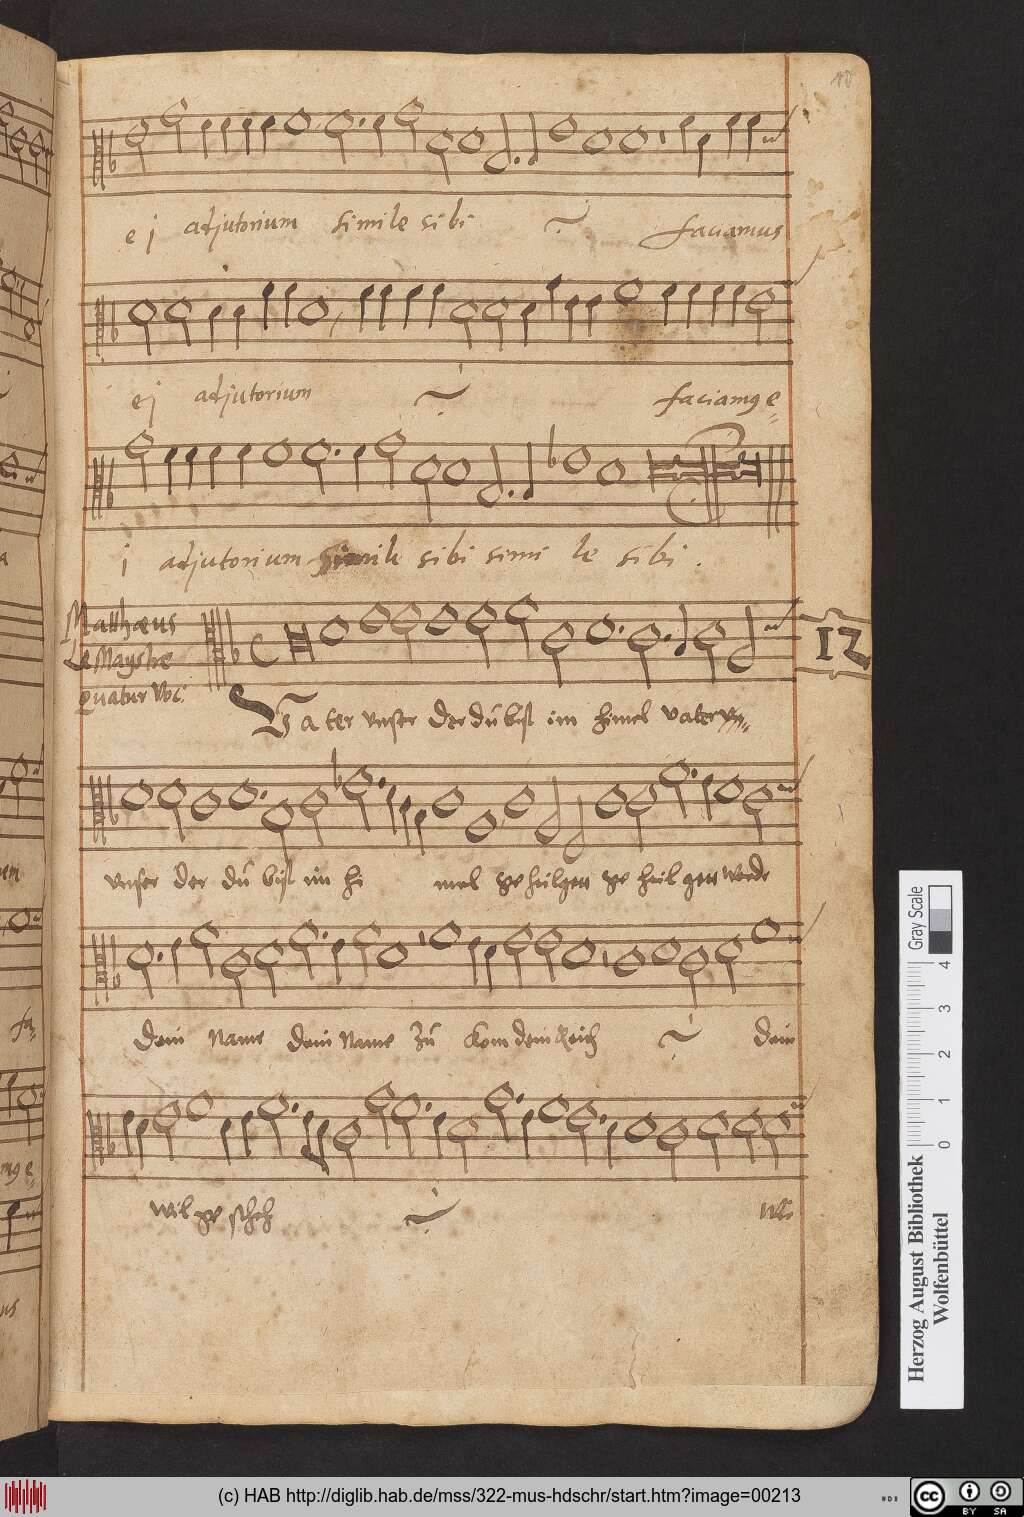 ej adjutorium simile sibi faciamus
ej adjutorium faciamꝰ e=
j adjutorium simile sibi simi le sibi.
Matthæus
Le Maystre
Quatuor Voc:
12
Vater vnser der du bist im himel vater vn=
vnser der du bist im hi mel geheilgen ge heil gen werde
dein name dein name Zu kom dein Reich dein
wil ge scheh
Herzog August Bibliothek
Wolfenbüttel
0 1 2 3 4
Gray Scale
(c) HAB http://diglib.hab.de/mss/322-mus-hdschr/start.htm?image=00213
cc BY SA